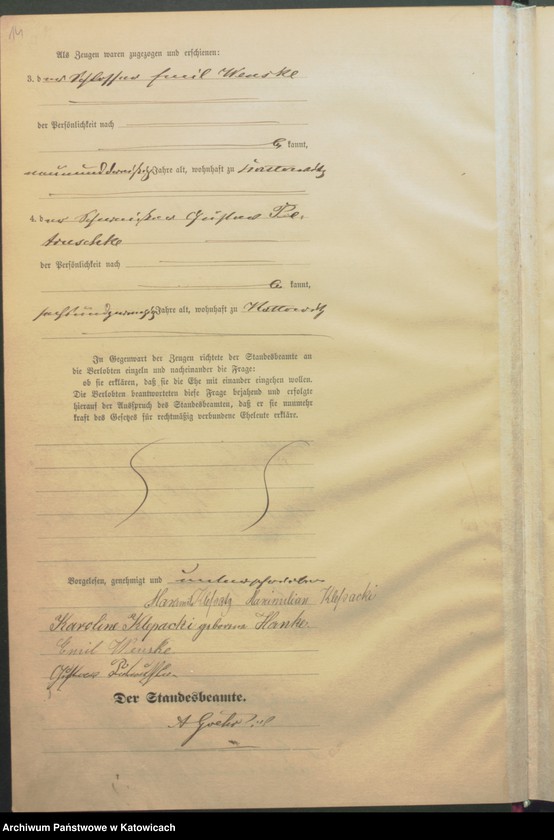 Als Zeugen waren zugezogen und erschienen:
3. der Schlosser Emil Wenske
der Persönlichkeit nach
kannt,
neununddreißig Jahre alt, wohnhaft zu Kattowitz
4. der Gustav Pe-
truschke
der Persönlichkeit nach
kannt,
sechsundzwanzig Jahre alt, wohnhaft zu Kattowitz
In Gegenwart der Zeugen richtete der Standesbeamte an
die Verlobten einzeln und nacheinander die Frage:
ob sie erklären, daß sie die Ehe mit einander eingehen wollen.
Die Verlobten beantworteten diese Frage bejahend und erfolgte
hierauf der Ausspruch des Standesbeamten, daß er sie nunmehr
kraft des Gesetzes für rechtmäßig verbundene Eheleute erkläre.
Vorgelesen, genehmigt und unterschrieben
Maximilian Klepacki
Karoline Klepacki geborene Hanke.
Emil Wenske
Gustav
Der Standesbeamte.
Archiwum Państwowe w Katowicach